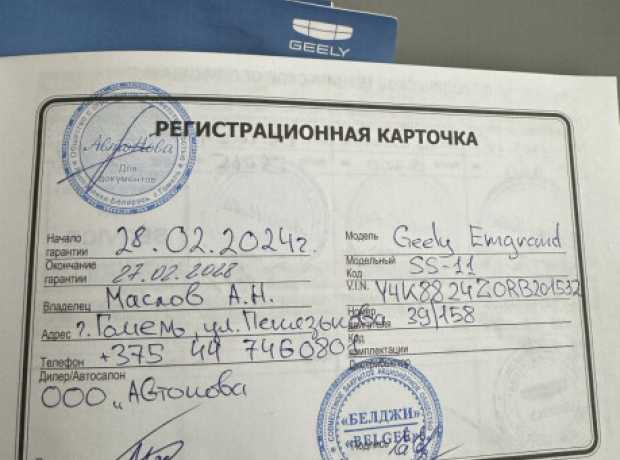 GEELY
РЕГИСТРАЦИОННАЯ КАРТОЧКА
АвтоНова
Для
документов
Начало гарантии 28.02.2024г.
Окончание гарантии 27.02.2028
Владелец Маслов А.Н.
Адрес г. Гомель, ул.
Телефон +375 44 7460801
Дилер/Автосалон
ООО „Автонова
Модель Geely Emgrand
Модельный Код SS-11
V.I.N. Y4K8824Z0RB201532
Номер двигателя 39/158
Код комплектации
«БЕЛДЖИ»
«BELGEE»
Подпись